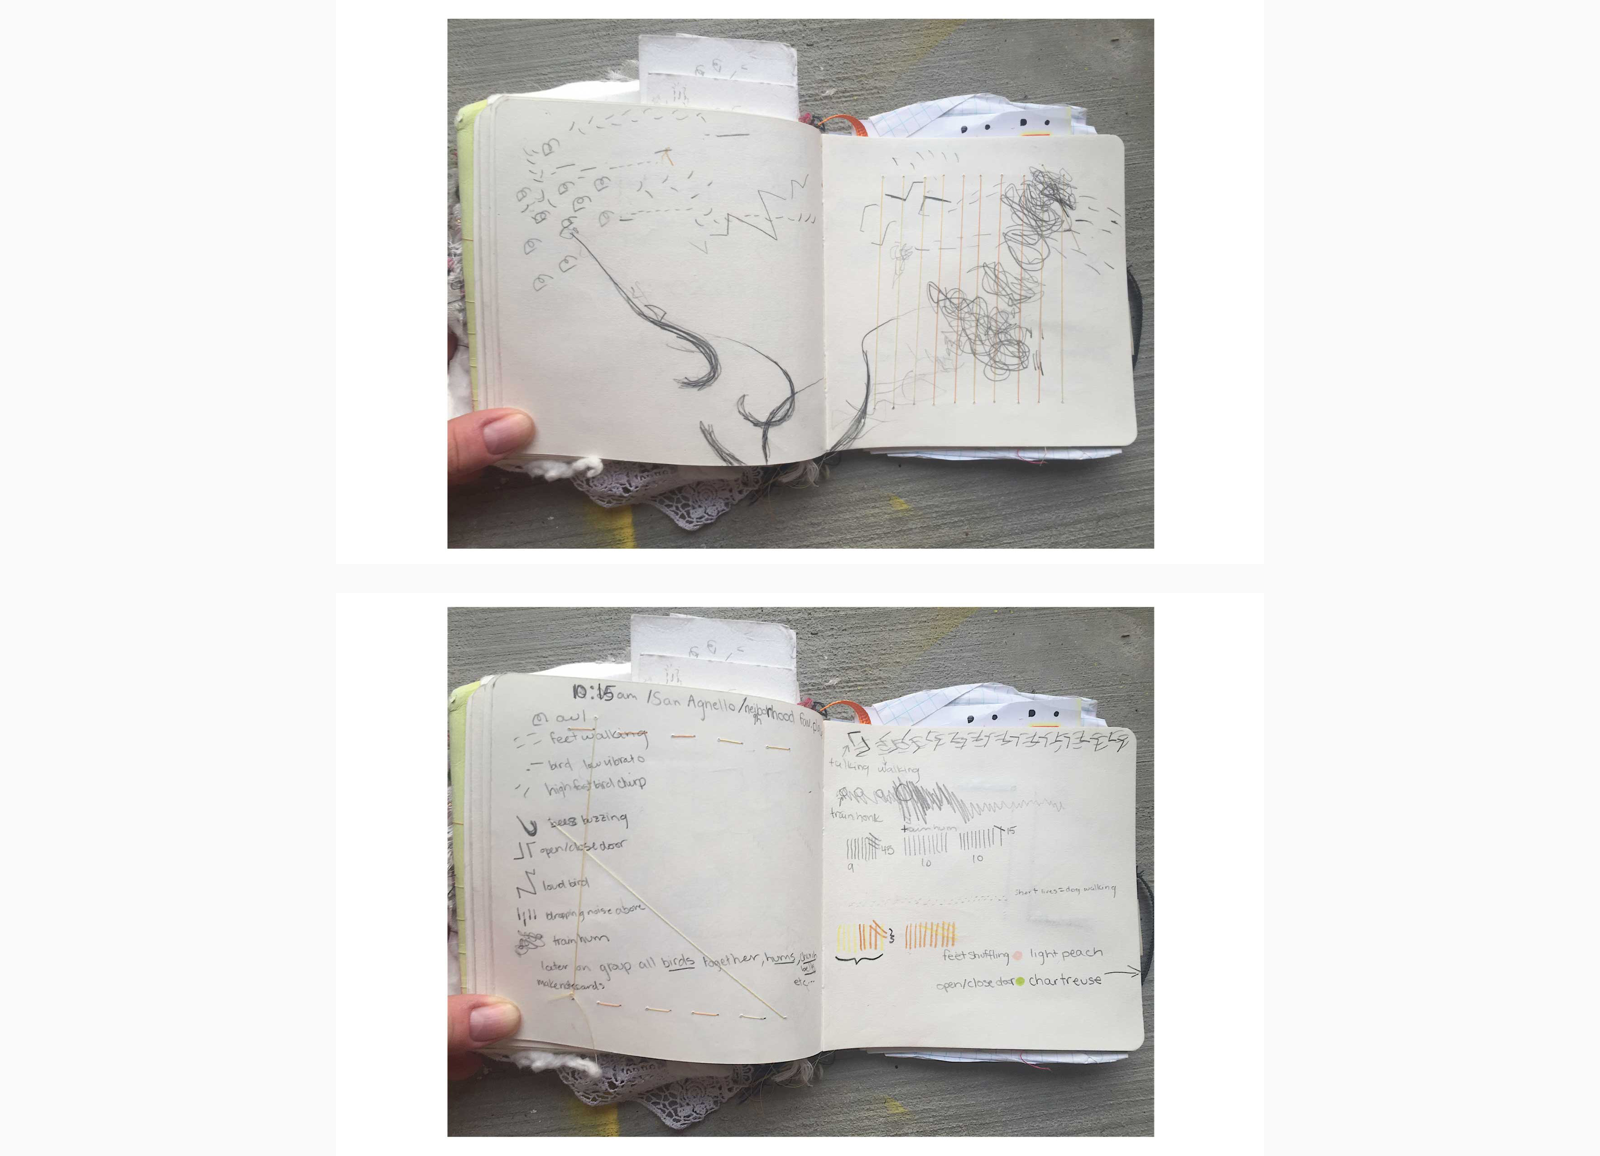 10:15am /San Agnello/neighborhood
owl
feet walking
bird low vibrato
high fast bird chirp
bees buzzing
open/close door
loud bird
banging noise above
train hum
later on group all birds together, hums, church
bells
etc...
make note cards
talking walking
train honk
train hum
15
45
9
10
10
short lines = dog walking
feet shuffling light peach
open/close door chartreuse